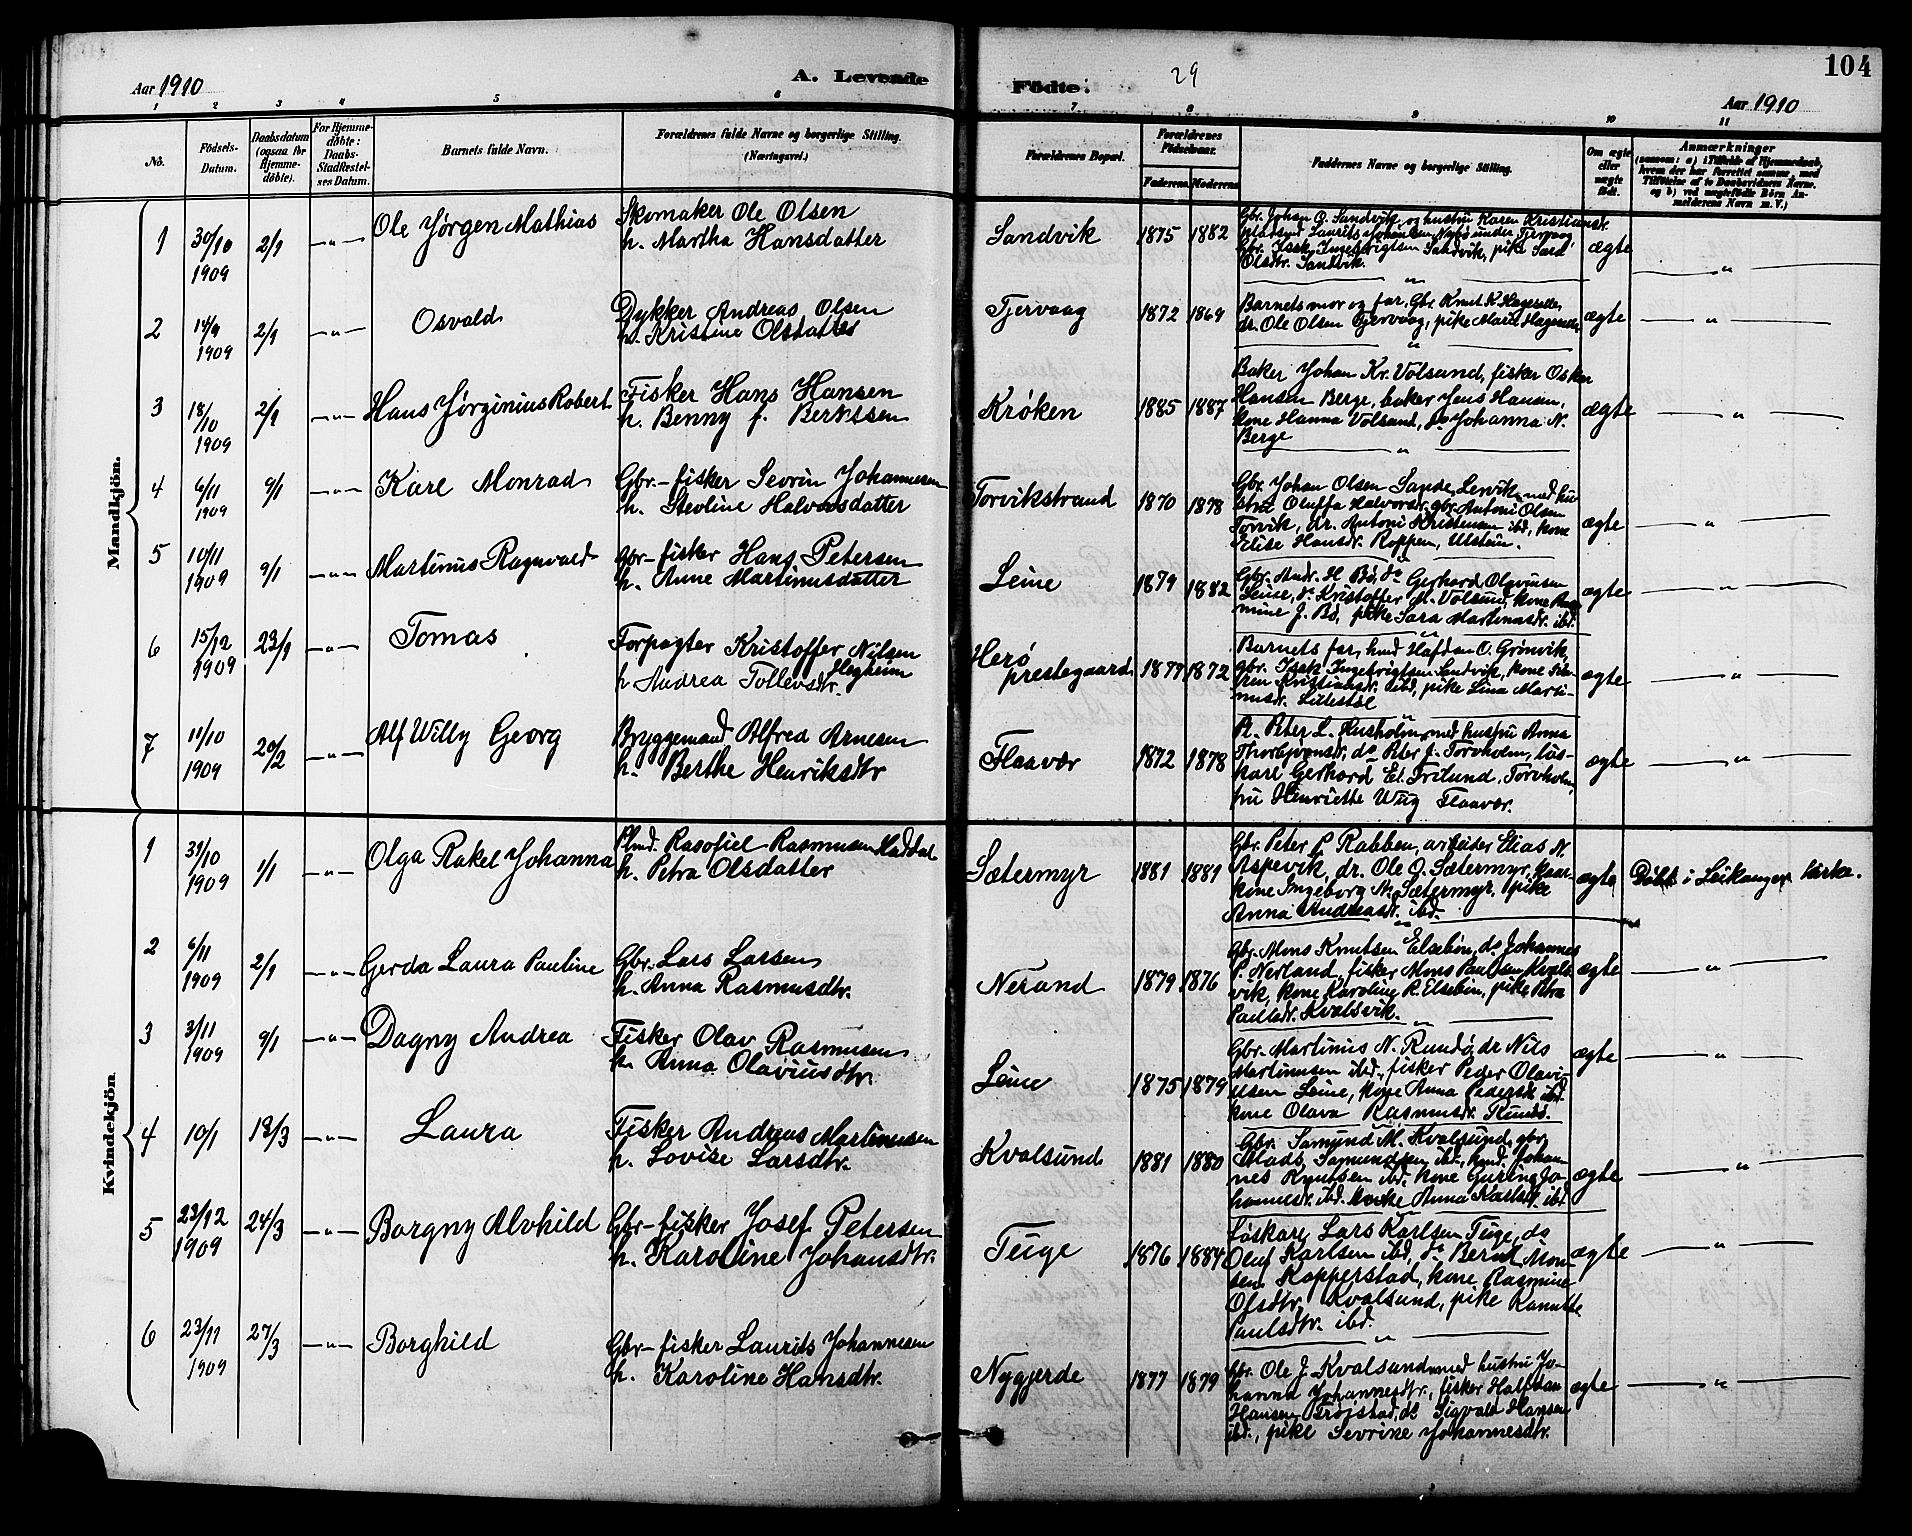 Aar 1910
A. Levende
Födte:
29
104
Aar 1910
1 2 3 4 5 6 7 8 9 10 11
No.
Födsels-Datum.
Daabsdatum (ogsaa for Hjemme-döbte).
For Hjemme-döbte: Daabs-Stadfæstel-ses Datum.
Barnets fulde Navn.
Forældrenes fulde Navne og borgerlige Stilling. (Næringsvei.)
Forældrenes Bopæl.
Forældrenes Födselsaar.
Faderens. Moderens
Faddernes Navne og borgerlige Stilling.
Om ægte eller uægte födt.
Anmærkninger
(saasom: a) i Tilfælde af Hjemmedaab, hvem der har forrettet samme, med Tilföielse af to Daabsvidners Navne, og b) ved uægtefödte Börn Anmelderens Navn m. V.)
Mandkjön.
1 30/10 1909 2/1 -"- Ole Jørgen Mathias
Skomaker Ole Olsen
h. Martha Hansdatter
Sandvik 1875 1882
Gbr. Johan O. Sandvik og hustru Karen Kristiansdr.
platsmd Laurits Johansen, under
Gbr. Isak Ingebrigtsen Sandvik, pike Sara
Olsdtr. Sandvik.
ægte "
2 14/9 1909 2/1 -"- Osvald
Dykker Andreas Olsen
h. Kristine Olsdatter
Tjervaag 1872 1869
Barnets mor og far, Gbr. Knut K. Hageselle,
dr. Ole Olsen Tjervaag, pike Marie Hageselle
ægte "
3 18/10 1909 2/1 -"- Hans Jørginius Robert
Fisker Hans Hansen
h. Benny f. Berntsen
Krøken 1885 1887
Baker Johan Kr. Volsund, fisker Oskar
Hansen Berge, baker Jens Hansen,
kone Hanna Volsund, do Johanna N.
Berge
ægte "
4 6/11 1909 9/1 -"- Kare Monrad
Gbr.-fisker Sevrin Johannesen
h. Stevline Halvorsdatter
Torvikstrand 1870 1878
Gbr. Johan Olsen Sande, Lervik med hu-
stru Oluffa Halvorsdr. gbr. Antoni Olsen
Torvik, dr. Antoni Kristensen ibd, kone
Elise Hansdr. Roppen, Ulstein.
ægte "
5 10/11 1909 9/1 -"- Martinus Ragnvald
Gbr-fisker Hans Petersen
h. Anne Martinusdatter
Leine 1879 1882
Gbr. Andr. H Bø, do Gerhard Olavinsen
Leine, do Kristoffer M. Volsund, kone
mine J. Bø, pike Sara Martinasdr. ibd.
ægte "
6 15/12 1909 23/1 -"- Tomas
Forpagter Kristoffer Nilsen
Hegheim
h Andrea Tollevsdr.
Herø
prestegaard 1877 1872
Barnets far, husmd Hafdan O. Grønvik
gbr. Isak Ingebrigtsen Sandvik, kone
Kristiansdr. ibd, pike Lina Marti-
nusdr. Lillestøl
ægte "
7 11/10 1909 20/2 -"- Alf Willy Georg
Bryggemand Alfred Arnesen
h. Berthe Henriksdtr
Flaavær 1872 1878
Pl. Peter L. Husholm med hustru Anna
Thorbjørnsdr, do Peter J. Torvholm, løs-
kare Gerhard El. Frilund, Torvholm,
fru Henriette Wiig Flaavær.
ægte "
Kvindekjön
1 31/10 1909 1/1 -"- Olga Rakel Johanna
Plmd. Rasofiel Rasmusen Haddal
h. Petra Olsdatter
Sætermyr 1881 1881
Gbr. Peter P Rabben, arbeider Elias N.
Aspevik, dr. Ole O. Sætermyr,
kone Ingeborg N. Sætermyr. pike
Anna Andreasdr. ibd.
ægte Døbt i Leikanger kirke.
2 6/11 1909 2/1 -"- Gerda Laura Pauline
Gbr. Lars Larsen
h. Anna Rasmusdtr.
Nerand 1879 1876
Gbr. Mons Knutsen Elsebøn, do Johannes
P. Nerland, fisker Mons Paulsen Kvals-
vik, kone Karoline R. Elsebøn, pike Petra
Paulsdr. Kvalsvik.
ægte "
3 3/11 1909 9/1 -"- Dagny Andrea
Fisker Olav Rasmusen
h. Anna Olaviusdtr.
Leine 1875 1879
Gbr. Martinus N. Rundø, dr Nils
Martinusen ibd., fisker Peder Olavi-
usen Leine, kone Anna Pedersdr ibd.
kone Olava Rasmusdr. Rundø.
ægte "
4 10/1 13/3 -"- Laura
Fisker Andreas Martinusen
h. Lovise Larsdtr.
Kvalsund 1881 1880
Gbr. Samund M. Kvalsund, gbr
Mads Samundsen ibd., husmd. Johan-
nes Knutsen ibd. kone Guring Jo-
hannesdr. ibd. enke Anna Karlsdr. ibd
ægte "
5 23/12 1909 24/3 -"- Borgny Alvhild
Gbr-fisker Josef Petersen
h. Karoline Johansdtr.
Tuge 1876 1884
Løskare Lars Karlsen Tuge, do
Oluf Karlsen ibd, do Bernt Mon-
sen Kopperstad, kone Rasmine
Olsdtr. Kvalsund, pike Ranutte
Paulsdtr. ibd.
ægte "
6 23/11 1909 27/3 -"- Borghild
Gbr-fisker Laurits Johannesen
h. Karoline Hansdtr.
Nygjerde 1877 1879
Gbr. Ole J. Kvalsund med hustru Jo-
hanna Johannesdtr., fisker Halfdan
Hansen Frøistad, do Sigvald Hansen
ibd., pike Sevrine Johannesdtr.
ægte "